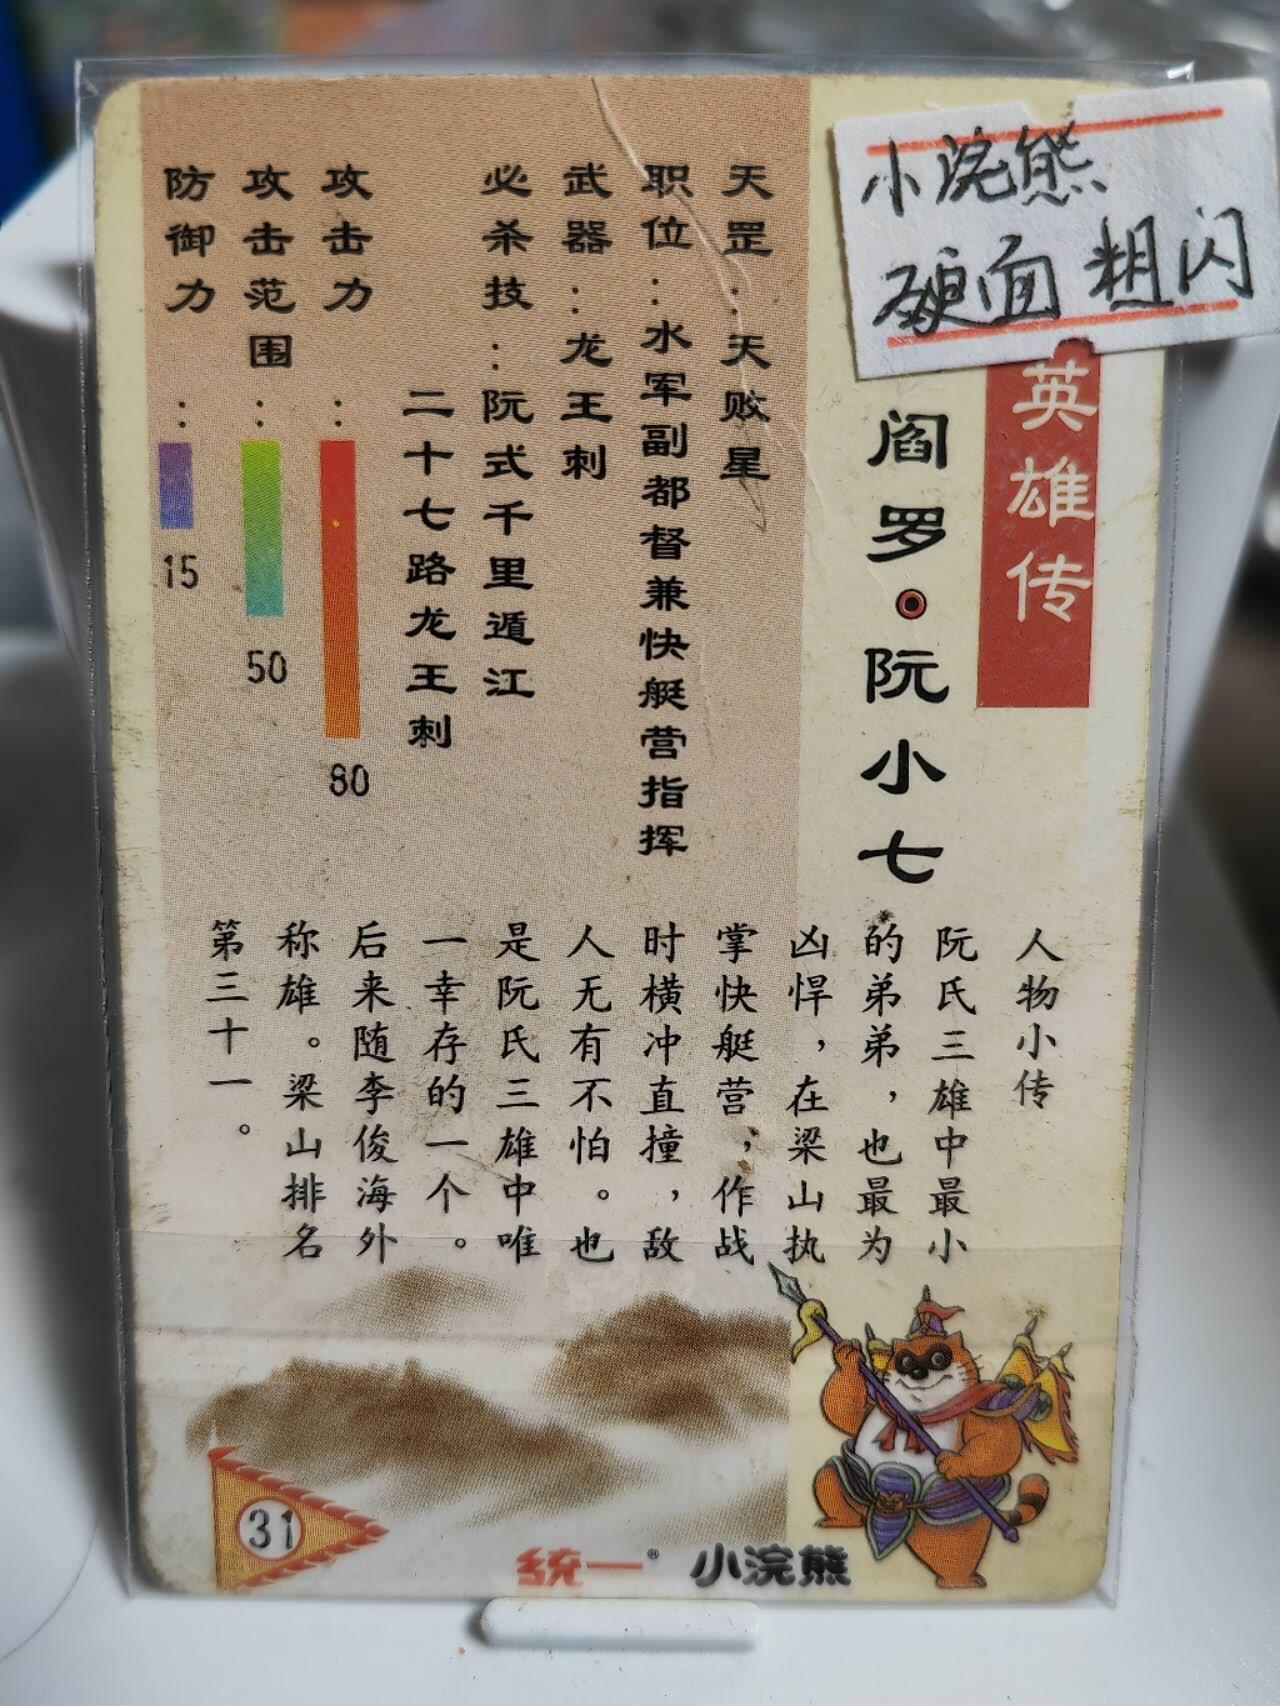 小浣熊
硬面粗闪
英雄传
阎罗·阮小七
天罡：天败星
职位：水军副都督兼快艇营指挥
武器：龙王刺
必杀技：阮式千里遁江
二十七路龙王刺
攻击力：80
攻击范围：50
防御力：15
人物小传
阮氏三雄中最小
的弟弟，也最为
凶悍，在梁山执
掌快艇营，作战
时横冲直撞，敌
人无有不怕。也
是阮氏三雄中唯
一幸存的一个。
后来随李俊海外
称雄。梁山排名
第三十一。
31
统一® 小浣熊